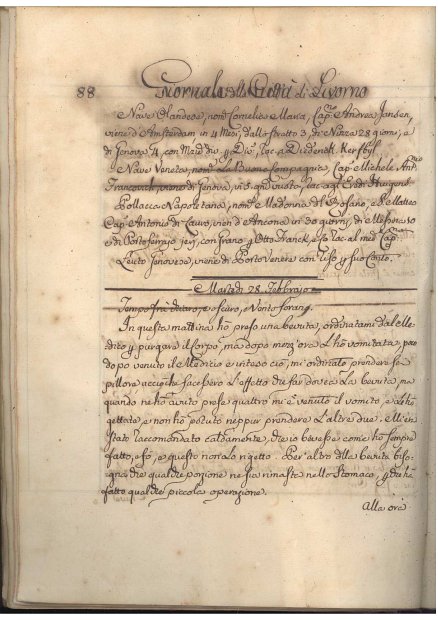 88 Giornale della Città di Livorno
Nave Olandese, nom.ᵃ Cornelia e Maria, Cap.ⁿᵒ Andrea Jansen,
viene d'Amsterdam in 4 Mesi, dallo stretto 3, di Nizza 28 giorni, e
di Genova 14, con
Nave Veneta, nom.ᵃ La Buona Compagnia, Cap.ᵒ Michele Ant.
viene di Genova, in 5
Pollacca Napoletana, nom.ᵃ Madonna di e S. Matteo
Cap.ᵒ Antonio di Lauro, vien d'Ancona in 30 giorni, di Messina 10
e di Portoferrajo jeri, con Grano
Leuto Genovese, viene di Porto Venere con Riso, p suo Conto.
Martedi 28. Febbrajo
Tempo fra chiaro, e oscuro, e Vento forano.
In questa mattina hò preso una bevuta, ordinatami dal Me-
dico p purgare il Corpo, ma dopo mezz'ora L'hò vomitata, poco
dopo venuto il Medico e inteso ciò, mi ordinò di prendere sei
pillore acciò che facessero L'effetto che far doveva La bevuta, ma
quando ne hò avute prese quattro mi è venuto il vomito, e le hò
gettate, e non hò potuto neppur prendere L'altre due. Mi è
stato raccomandato caldamente, che io bevessi come hò sempre
fatto, e fò, e questo non Lo rigetto. Per altro della bevita biso-
gna che qualche porzione ne sia rimasta nello Stomaco, p che hà
fatto qualche piccola operazione.
Alla ora